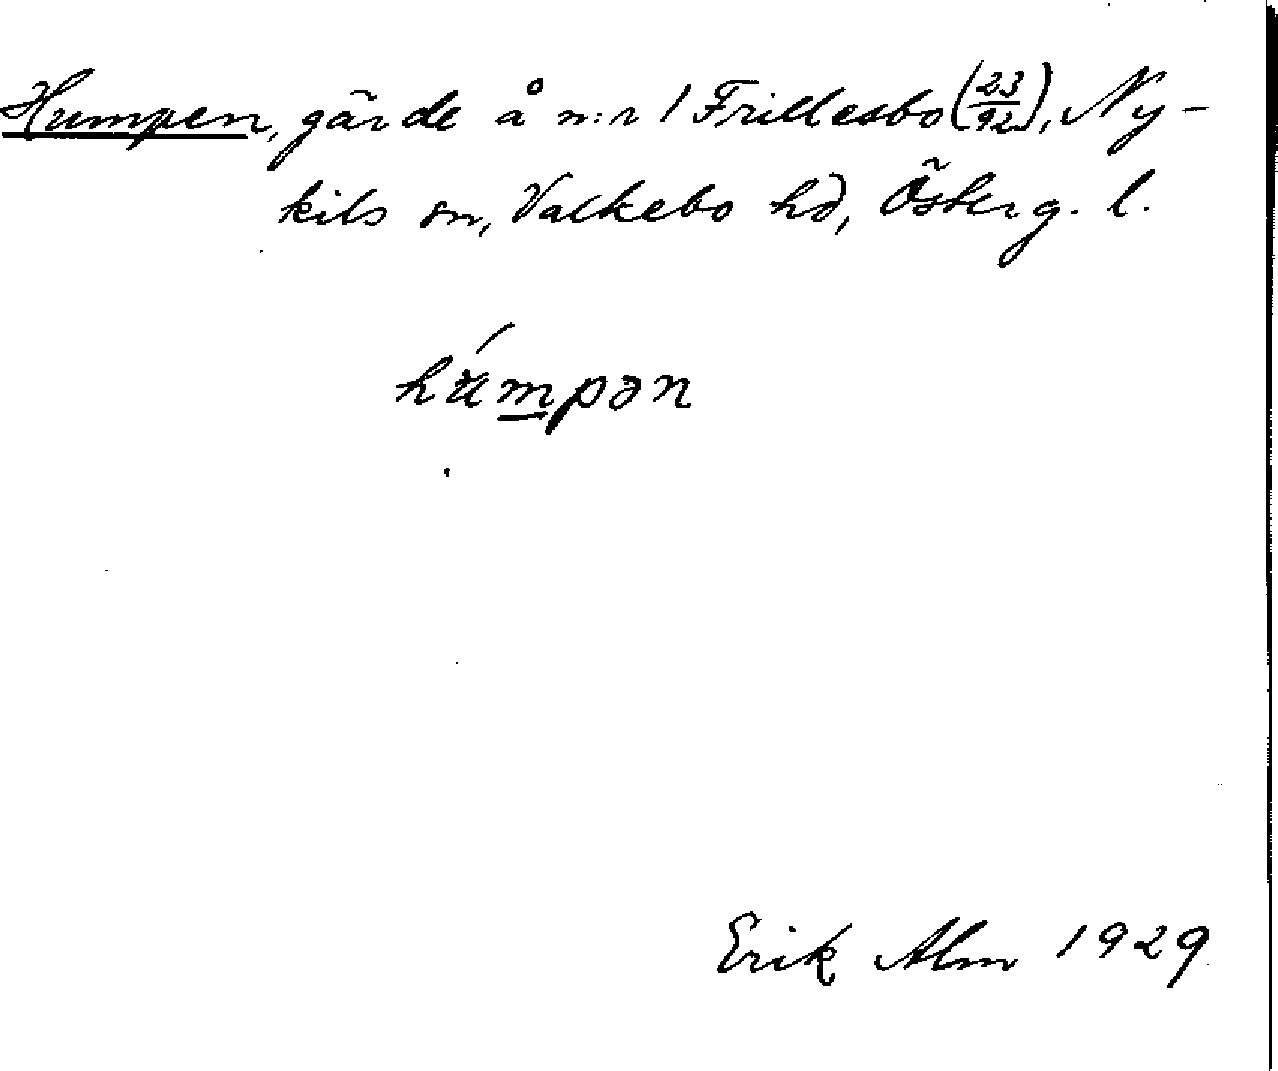 Humpen, gärde å n:r 1 Frillesbo (23/92), Ny-
kils sn, Valkebo hd, Österg. l.
húmpən
Erik Alm 1929